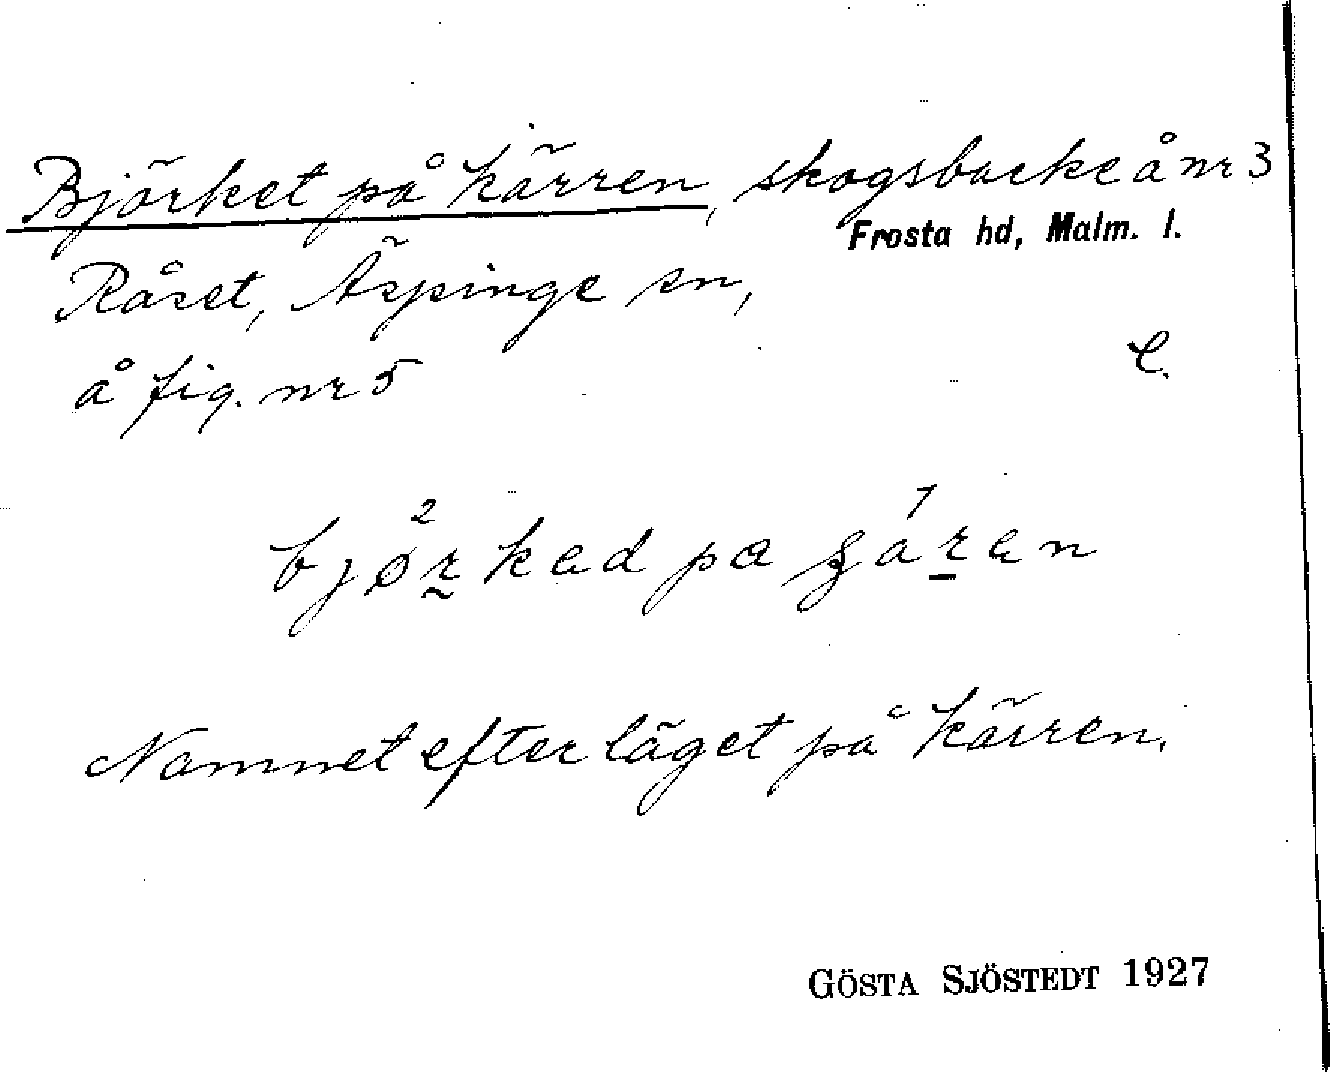 Björket på kärren, skogsbacke å nr 3
Frosta hd, Malm. l.
Råset, Äspinge sn,
å fig. nr 5
C.
Namnet efter läget på kärren.
GÖSTA SJÖSTEDT 1927